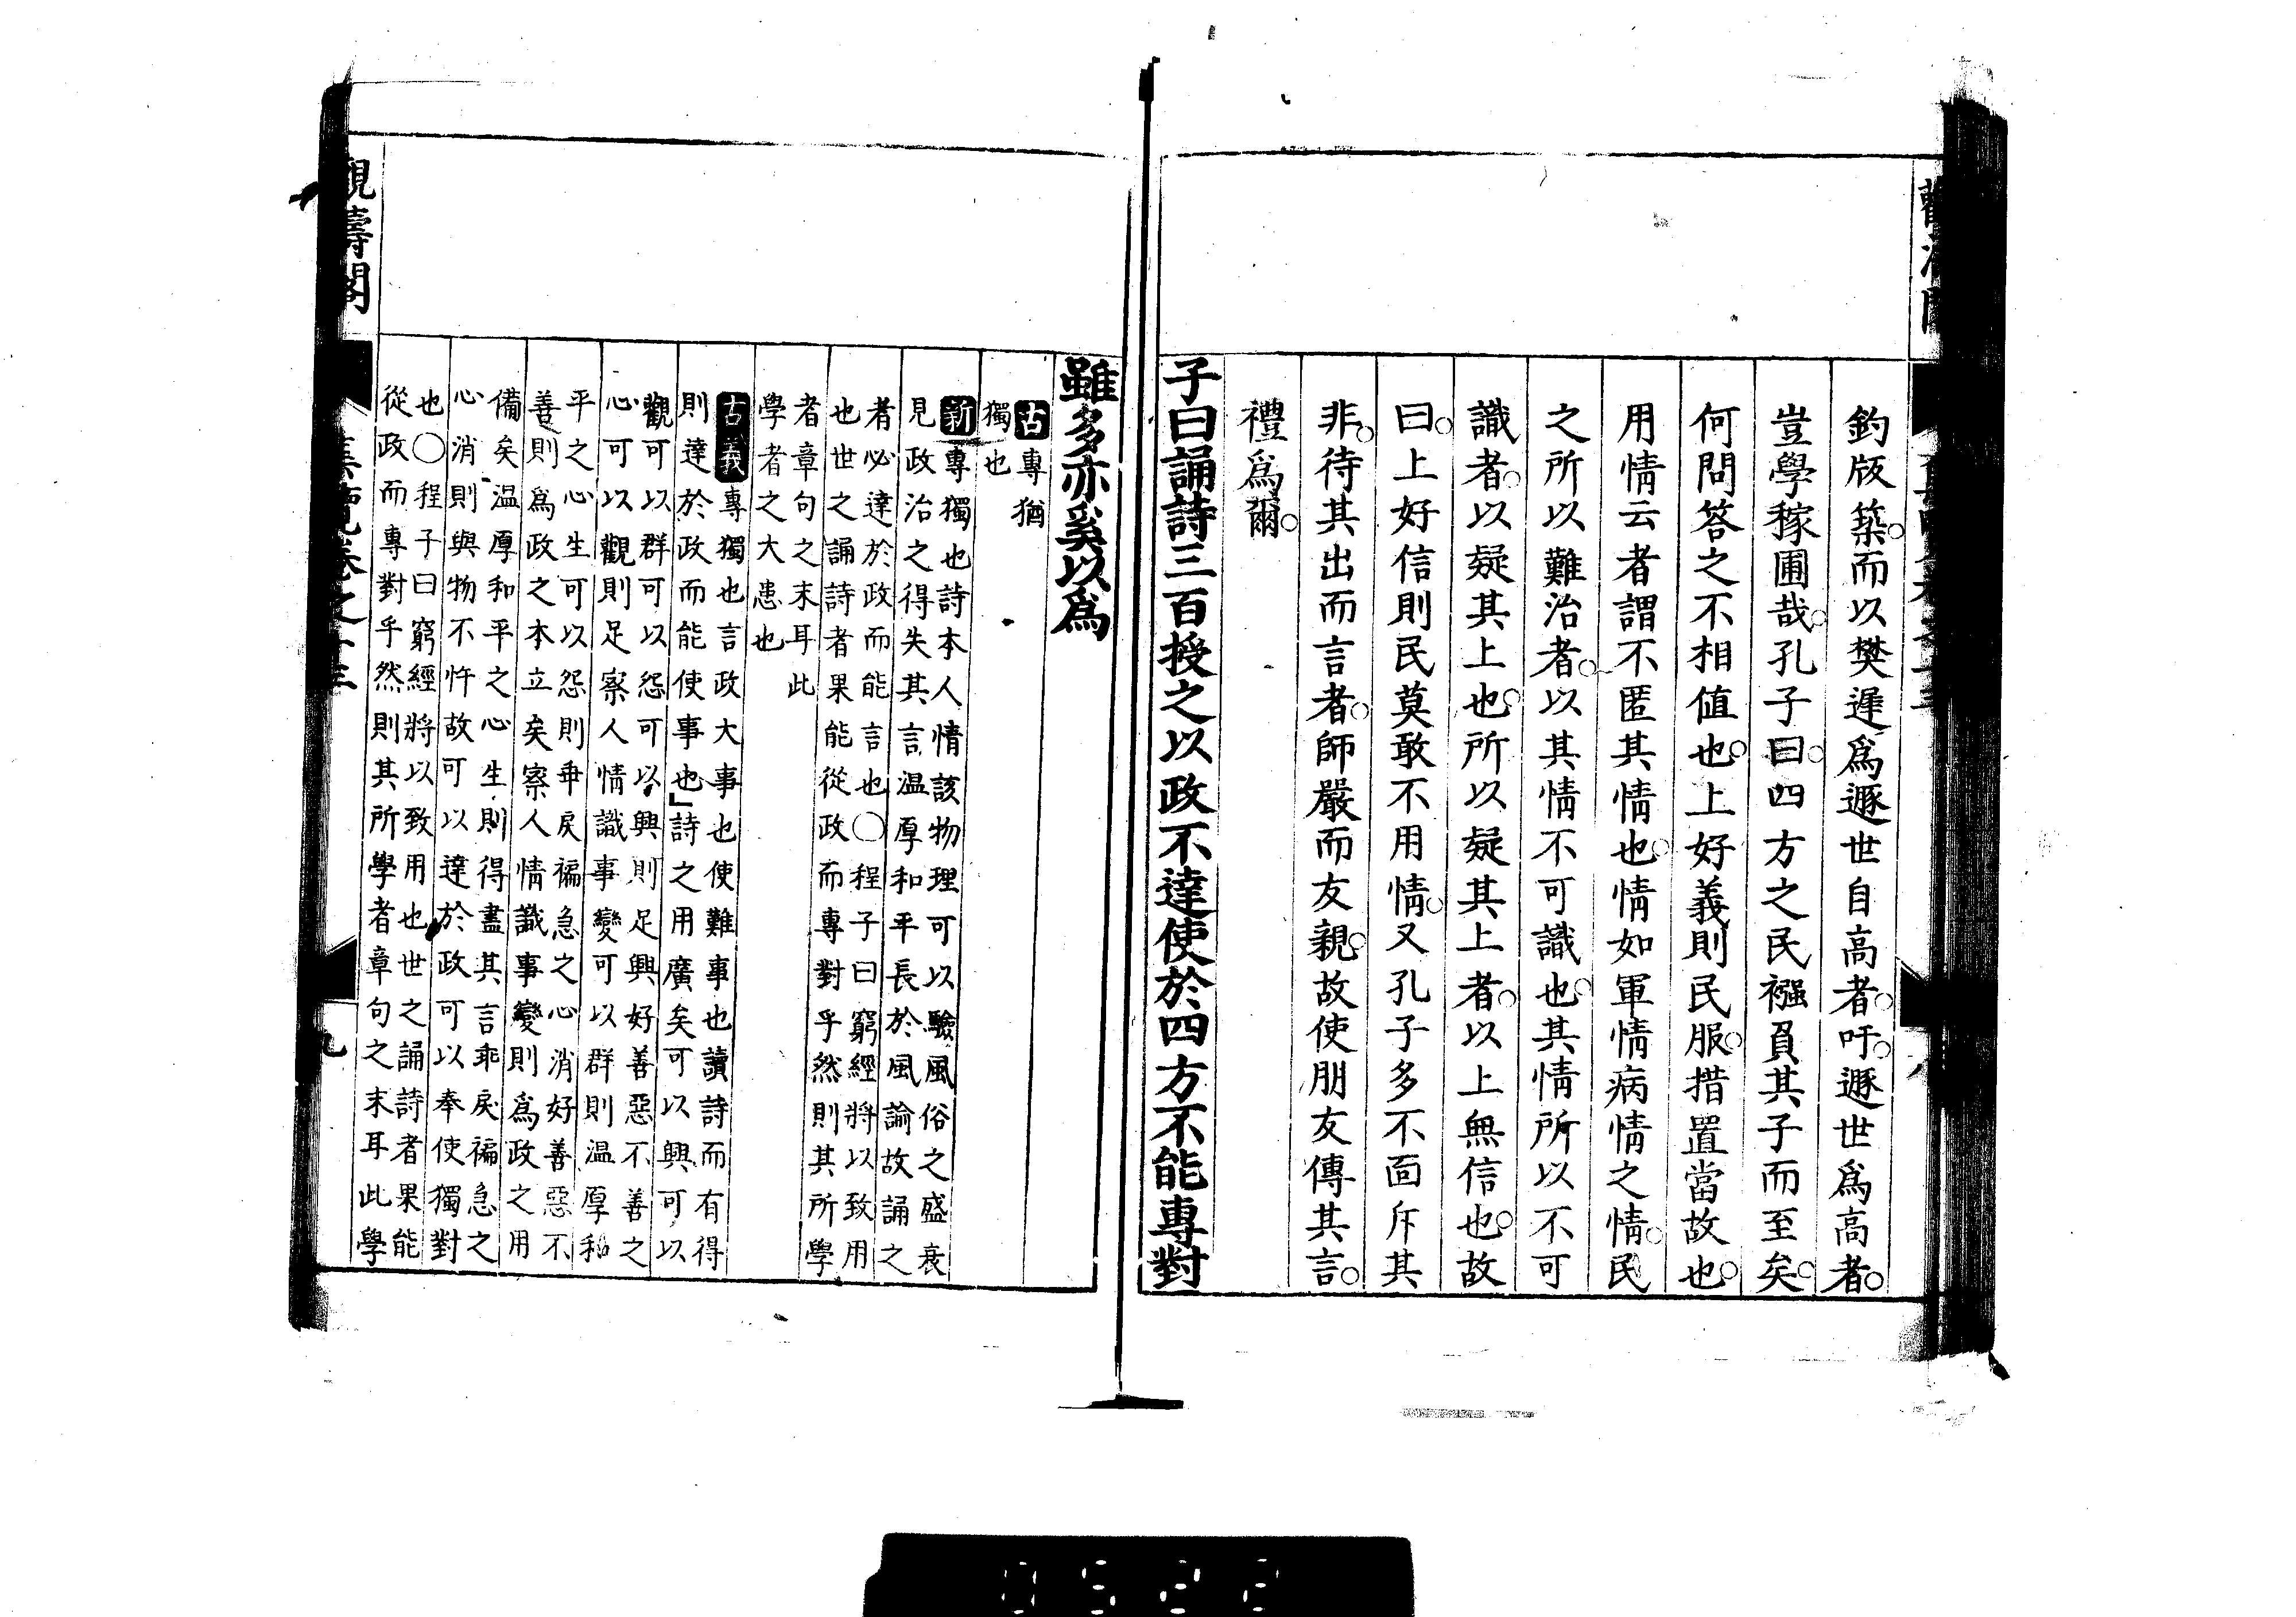 釣版築而以樊遲爲遯世自高者吁遯世爲高者
豈學稼圃哉孔子曰四方之民襁負其子而至矣
何問答之不相值也上好義則民服措置當故也
用情云者謂不匿其情也情如軍情病情之情民
之所以難治者以其情不可識也其情所以不可
識者以疑其上也所以疑其上者以上無信也故
曰上好信則民莫敢不用情又孔子多不面斥其
非待其出而言者師嚴而友親故使朋友傳其言
禮爲爾
子曰誦詩三百授之以政不達使於四方不能專對
雖多亦奚以爲
古專猶
獨也
新專獨也詩本人情該物理可以驗風俗之盛衰
見政治之得失其言温厚和平長於風諭故誦之
者必達於政而能言也○程子曰窮經將以致用
也世之誦詩者果能從政而專對乎然則其所學
者章句之末耳此
學者之大患也
古義專獨也言政大事也使難事也讀詩而有得
則達於政而能使事也」詩之用廣矣可以興可以
觀可以群可以怨可以興則足興好善惡不善之
心可以觀則足察人情識事變可以群則温厚和
平之心生可以怨則爭戾褊急之心消好善惡不
善則爲政之本立矣察人情識事變則爲政之用
備矣温厚和平之心生則得盡其言乖戾褊急之
心消則與物不忤故可以達於政可以奉使獨對
也○程子曰窮經將以致用也世之誦詩者果能
從政而專對乎然則其所學者章句之末耳此學
觀濤閣
集覽卷之十三
九